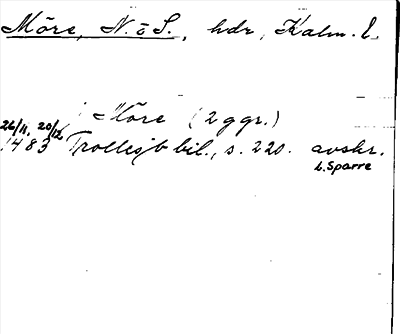 Möre, N. o S., hdr, Kalm. l.
Möre (2 ggr.)
26/11, 20/12
1483 Trolleg b bil., s. 220. avskr.
L. Sparre